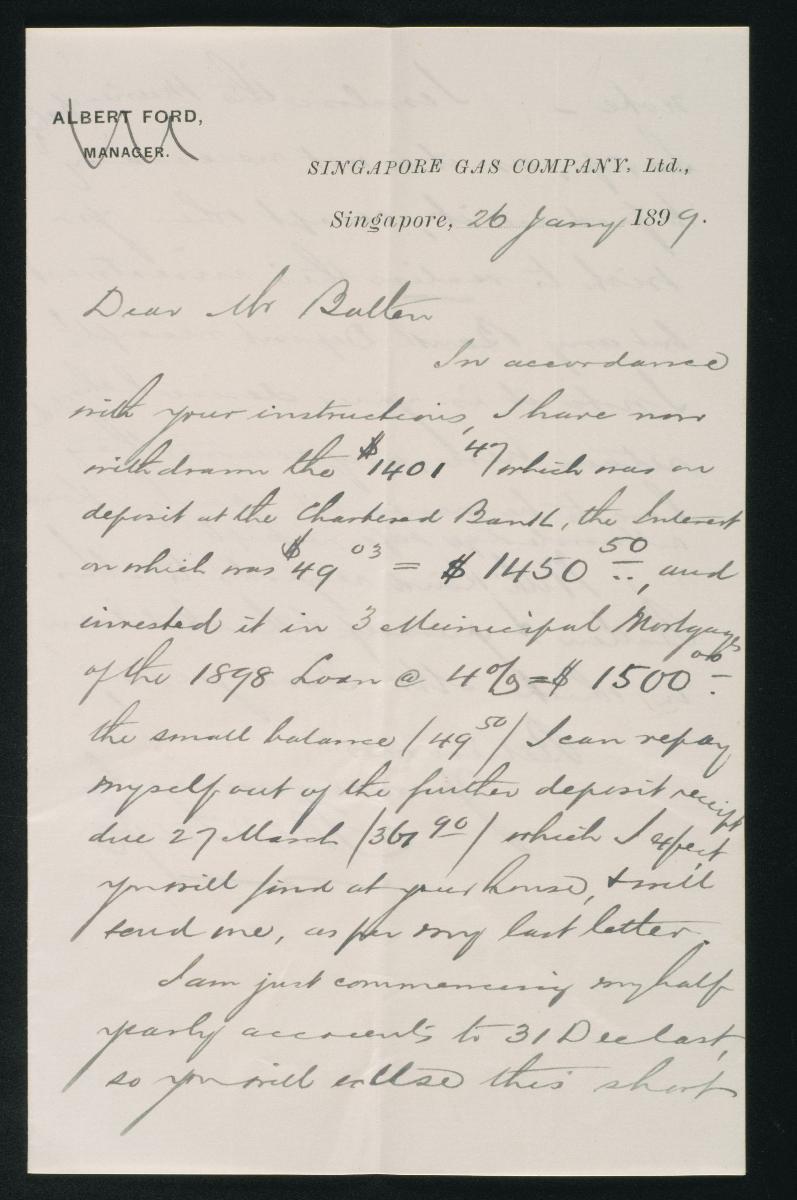 ALBERT FORD,
MANAGER.
SINGAPORE GAS COMPANY, Ltd.,
Singapore, 26 Jany 1899.
Dear Mr Batten
In accordance
with your instructions, I have now
withdrawn the $1401 47 which was on
deposit at the Chartered Bank, the Interest
on which was $49 03 = $1450 50, and
invested it in 3 Municipal Mortgages
of the 1898 Loan @ 4% = $1500 00
the small balance (49 50) I can repay
myself out of the further deposit receipt
due 27 March (367 90) which I expect
you will find at your house, & will
send me, as per my last letter.
I am just commencing my half
yearly accounts to 31 Dec last,
so you will excuse this short